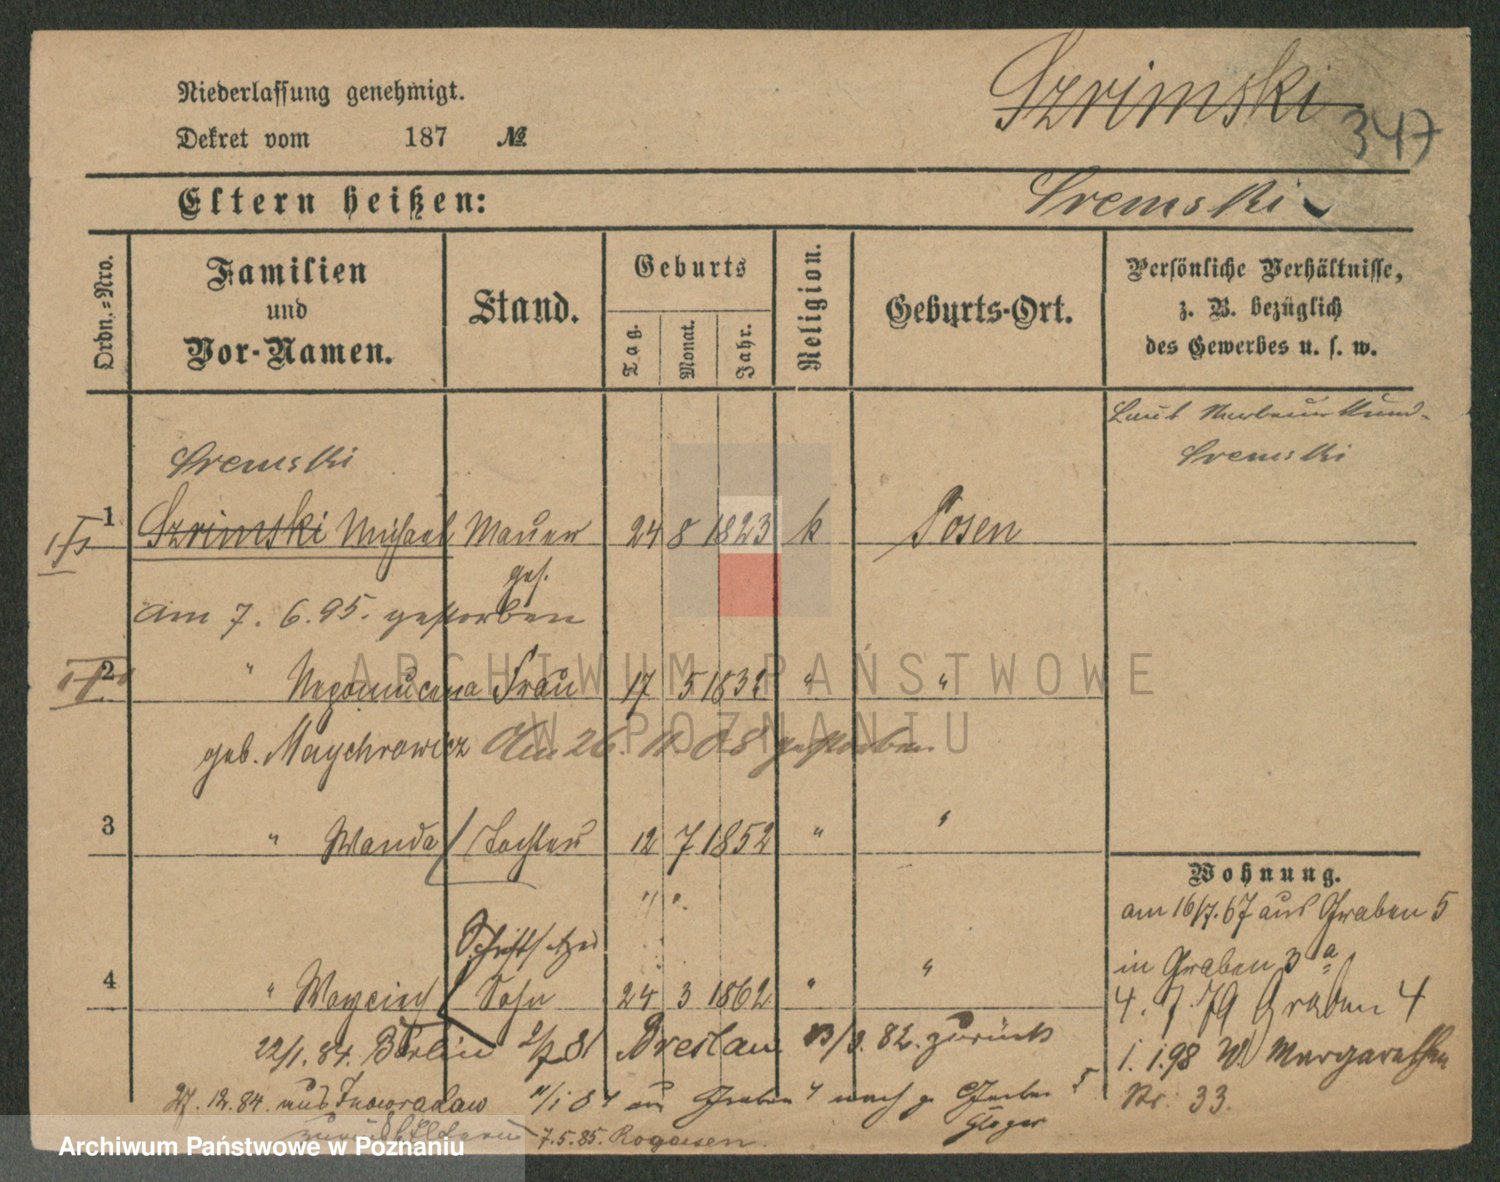 Niederlassung genehmigt.
Dekret vom 187 №
Szrimski
347
Eltern heißen:
Sremski
Ordn.-Nro.
Familien
und
Vor-Namen.
Stand.
Geburts
Tag.
Monat.
Jahr.
Religion.
Geburts-Ort.
Persönliche Verhältnisse,
z. B. bezüglich
des Gewerbes u. s. w.
Laut
Sremski
Sremski
1 Szrimski Michael Maurer 24 8 1823 k Posen
gest.
am 7. 6. 95. gestorben
2 " Nepomucena Frau 17 5 1832 " "
geb. Maychrowicz Am 26. 11. 08 gestorben
3 " Wanda Tochter 12 7 1852 " "
" "
Schriftsetzer
4 " Woyciech Sohn 24 3 1862 " "
22/1. 84. Berlin 2/7 81 Breslau 82. zurück
27. 12. 84. aus Inowradaw Graben 4 nach
7. 5. 85. Rogasen.
Wohnung.
am 16/7. 67 aus Graben 5
in Graben 3 a
4. 7. 79 Graben 4
1. 1. 98 W. Margarethen
Nr. 33.
ARCHIWUM PAŃSTWOWE
W POZNANIU
Archiwum Państwowe w Poznaniu